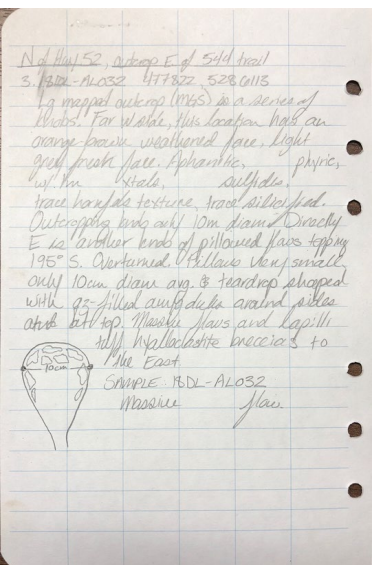 N of Hwy 52, outcrop E of 544 trail
3. 18DL-AL032 477822 5286113
Lg mapped outcrop (MGS) is a series of
knobs. Far W side, this location has an
orange-brown weathered face, light
grey fresh face. Aphanitic, phyric,
w/ 1m xtals, sulfides,
trace hornfels texture, trace silicified.
Outcropping knob only 10m diam. Directly
E is another knob of pillowed flows topping
195° S. Overturned. Pillows very small,
only 10cm diam avg. & teardrop shaped
with qz-filled amygdules around sides
at top. Massive flows and lapilli
tuff hyaloclastite breccias to
the East
10cm
SAMPLE: 18DL-AL032
Massive flow.